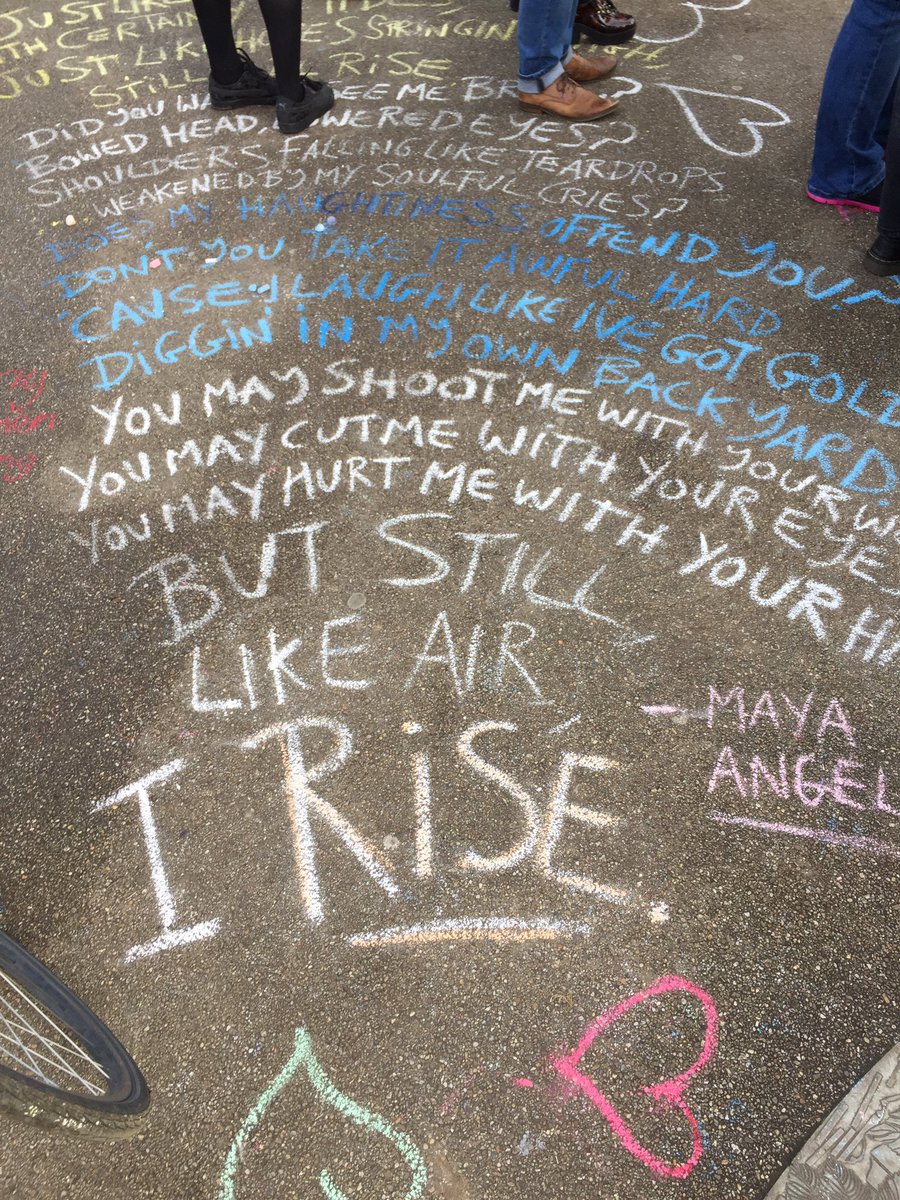 JUST LIKE
WITH CERTAIN
JUST LIKE HOPES SPRINGIN
STILL RISE
DID YOU ME
BOWED HEAD EYES?
SHOULDERS FALLING LIKE TEARDROPS
WEAKENED BY MY SOULFUL CRIES?
DOES MY HAUGHTINESS OFFEND YOU?
DON'T YOU TAKE IT AWFUL HARD
'CAUSE I LAUGH LIKE I'VE GOT GOLD
DIGGIN' IN MY OWN BACK YARD.
YOU MAY SHOOT ME WITH YOUR
YOU MAY CUT ME WITH YOUR EYE
YOU MAY HURT ME WITH YOUR
BUT STILL
LIKE AIR
I RISE.
- MAYA
ANGEL